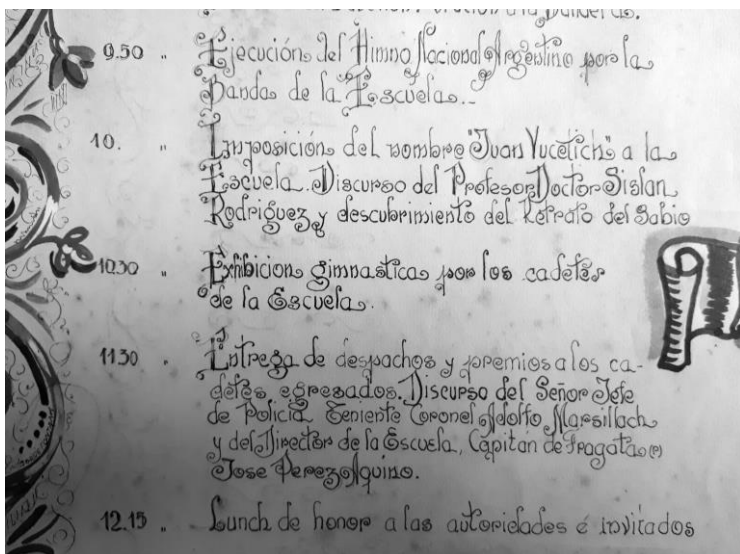 a la Bandera.
9.50 " Ejecución del Himno Nacional Argentino por la
Banda de la Escuela..
10. " Imposición del nombre "Juan Vucetich" a la
Escuela. Discurso del Profesor Doctor Sislan
Rodriguez y descubrimiento del Retrato del Sabio
10.30 " Exhibicion gimnastica por los cadetes
de la Escuela.
11.30 " Entrega de despachos y premios a los ca-
detes egresados. Discurso del Señor Jefe
de Policía Teniente Coronel Adolfo Marsillach
y del Director de la Escuela, Capitán de Fragata (R)
Jose Perez Aquino.
12.15 " Lunch de honor a las autoridades é invitados